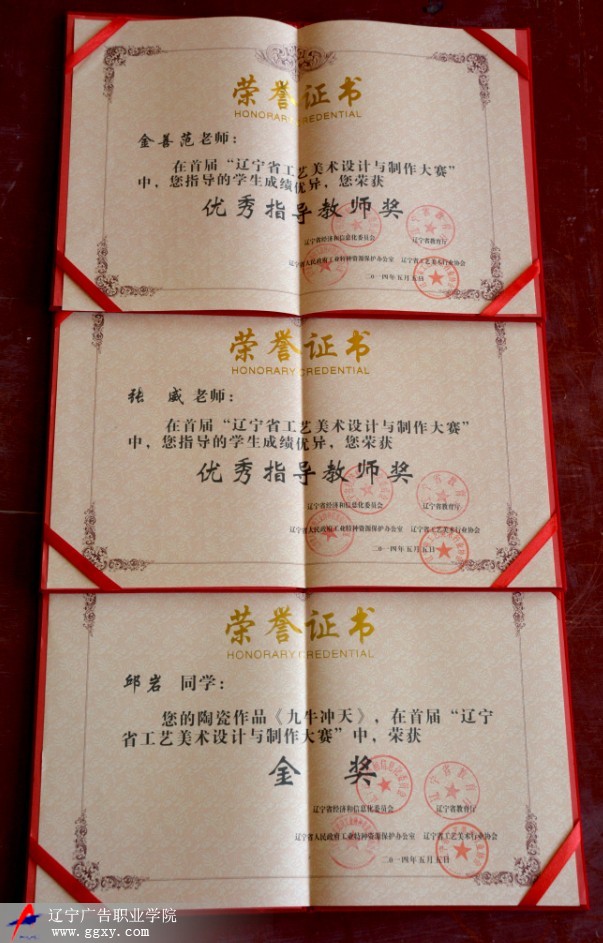 荣誉证书
HONORARY CREDENTIAL
金善范老师：
在首届“辽宁省工艺美术设计与制作大赛”
中，您指导的学生成绩优异，您荣获
优秀指导教师奖
辽宁省经济和信息化委员会 辽宁省教育厅
辽宁省人民政府工业特种资源保护办公室 辽宁省工艺美术行业协会
二〇一四年五月五日
荣誉证书
HONORARY CREDENTIAL
张 威老师：
在首届“辽宁省工艺美术设计与制作大赛”
中，您指导的学生成绩优异，您荣获
优秀指导教师奖
辽宁省经济和信息化委员会 辽宁省教育厅
辽宁省人民政府工业特种资源保护办公室 辽宁省工艺美术行业协会
二〇一四年五月五日
荣誉证书
HONORARY CREDENTIAL
邱岩 同学：
您的陶瓷作品《九牛冲天》，在首届“辽宁
省工艺美术设计与制作大赛”中，荣获
金 奖
辽宁省经济和信息化委员会 辽宁省教育厅
辽宁省人民政府工业特种资源保护办公室 辽宁省工艺美术行业协会
二〇一四年五月五日
辽宁广告职业学院
www.ggxy.com